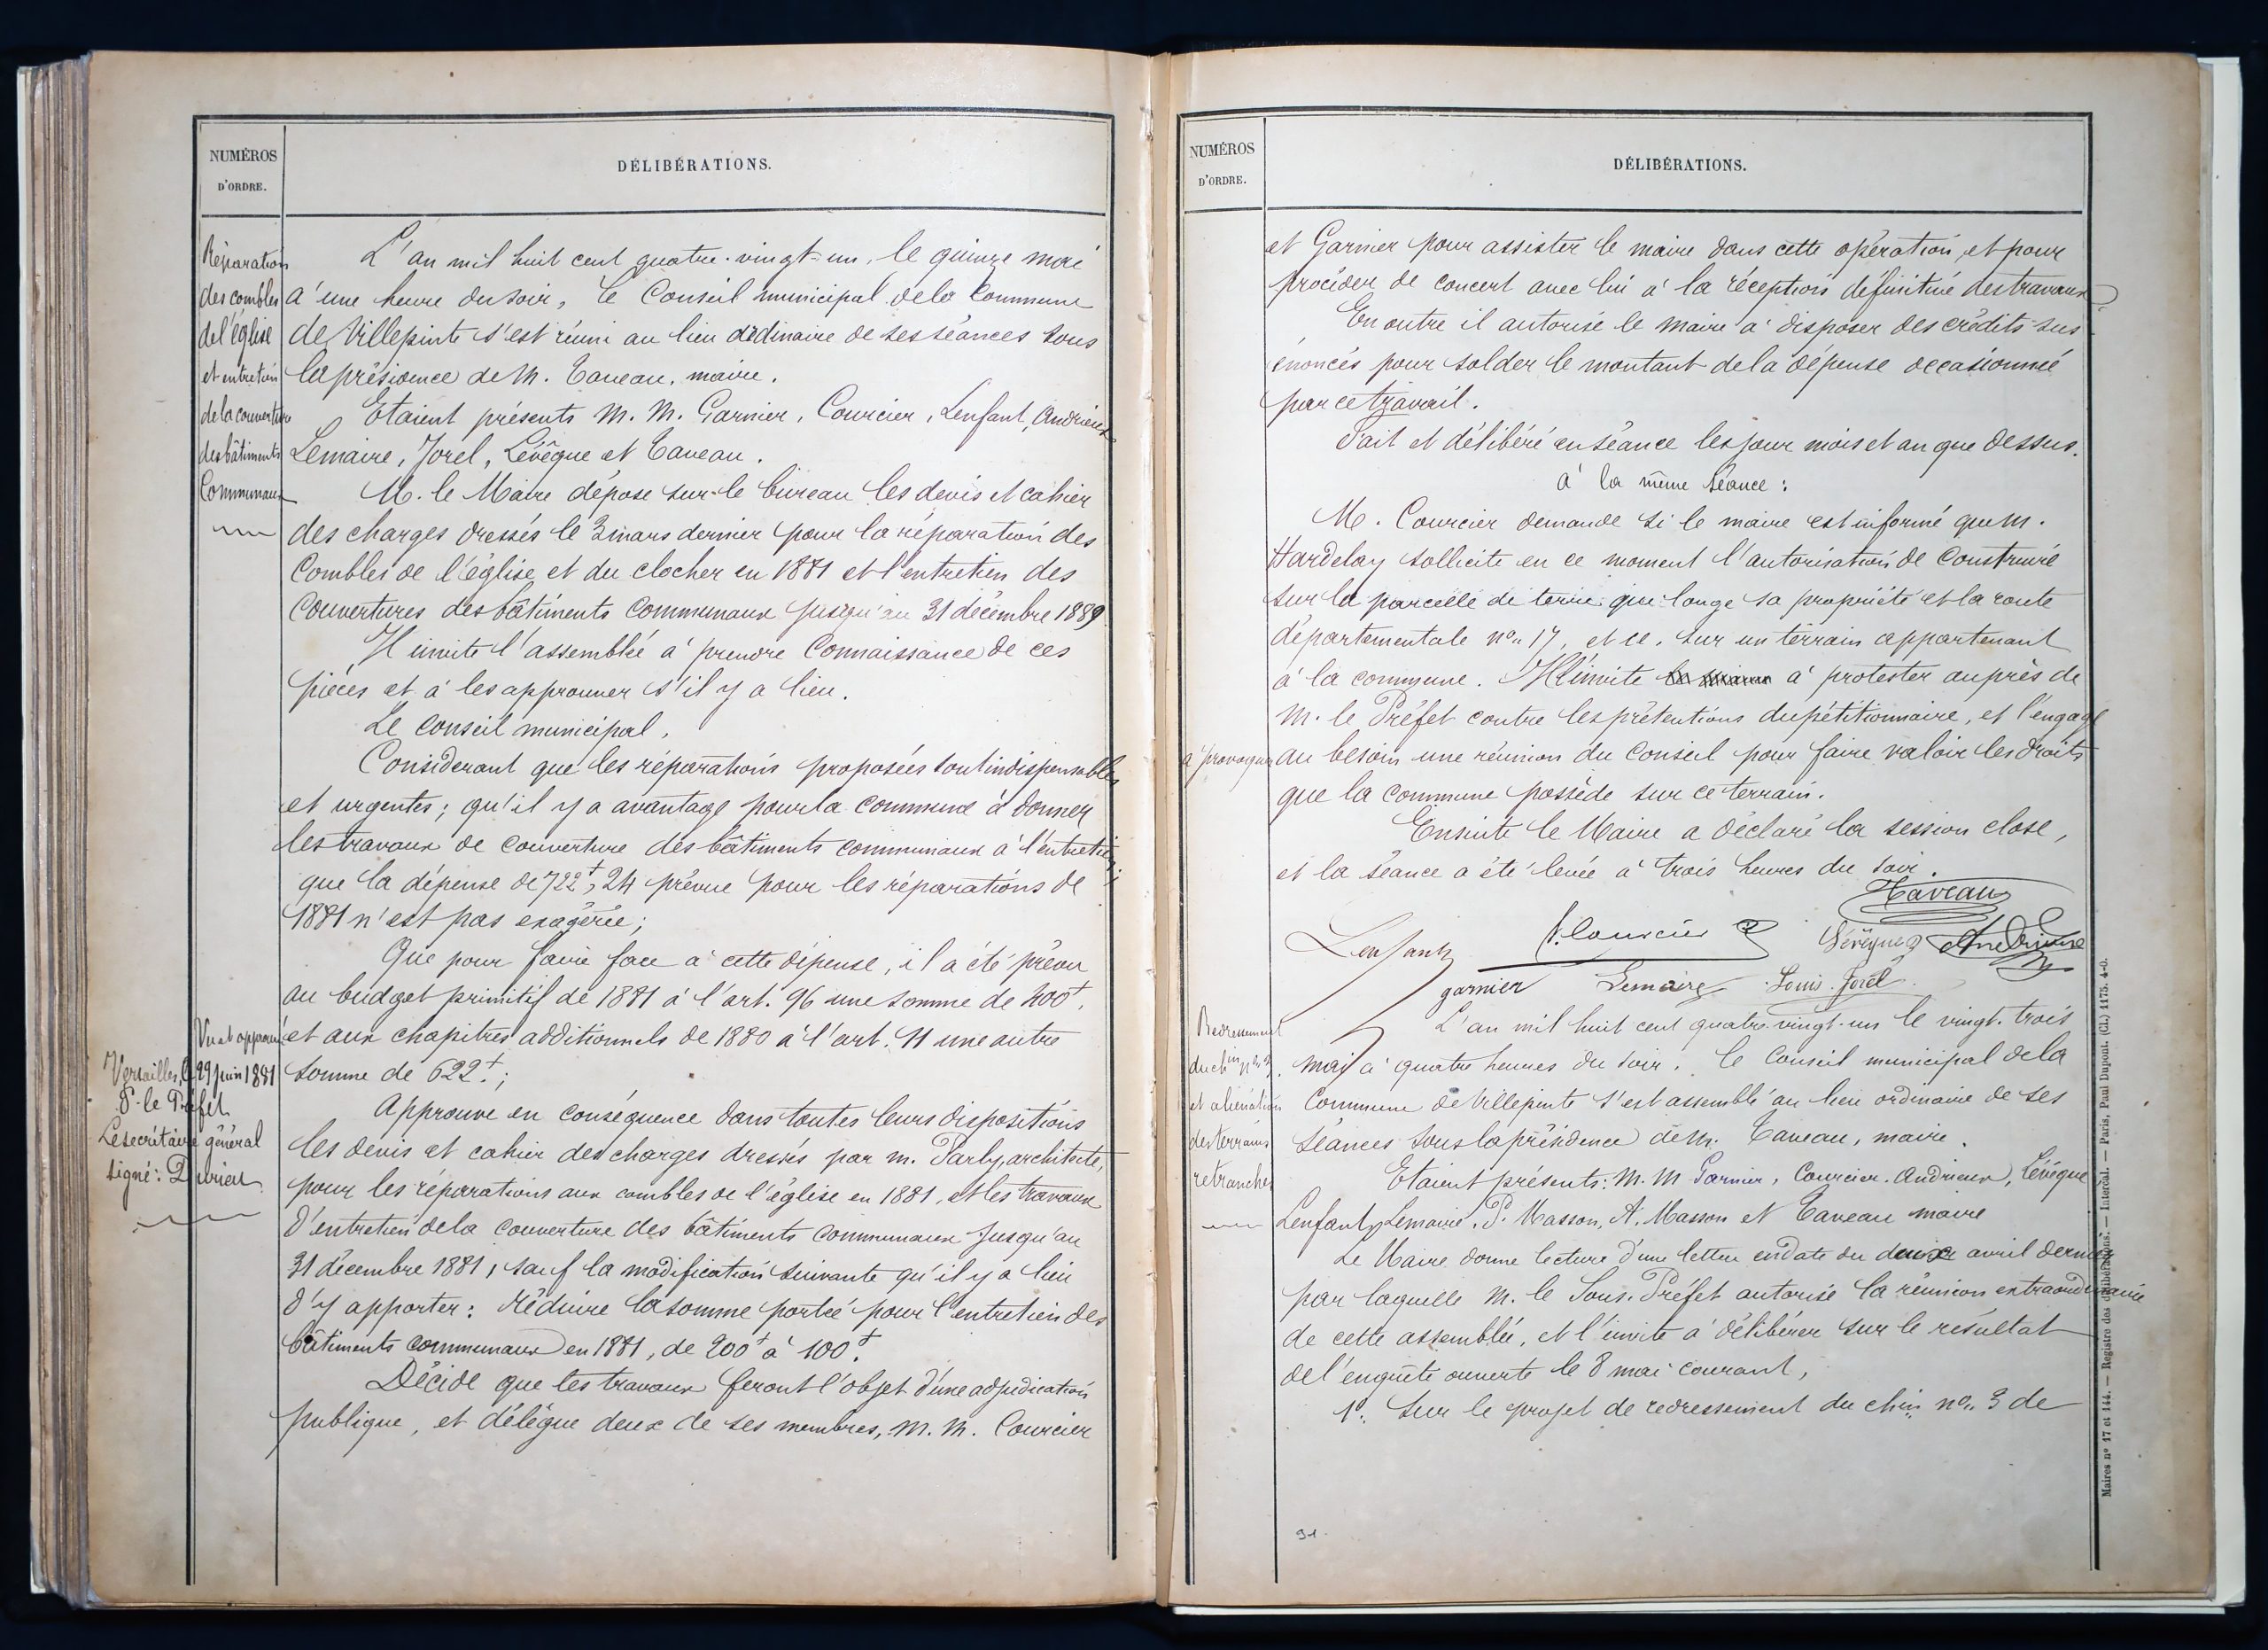 NUMÉROS
D'ORDRE.
DÉLIBÉRATIONS.
Réparation
des combles
de l'église
et entretien
de la couverture
des bâtiments
Communaux
L'an mil huit cent quatre-vingt-un, le quinze mai
à une heure du soir, le Conseil municipal de la Commune
de Villepinte s'est réuni au lieu ordinaire de ses séances sous
la présidence de M. Taveau, maire.
Etaient présents M. M. Garnier, Courcier, Lenfant, Andrieux
Lemaire, Jorel, Lévêque et Taveau.
M. le Maire dépose sur le bureau les devis et cahier
des charges dressés le 3 mars dernier pour la réparation des
Combles de l'église et du clocher en 1881 et l'entretien des
Couvertures des bâtiments Communaux jusqu'au 31 décembre 1889
Il invite l'assemblée à prendre Connaissance de ces
pièces et à les approuver s'il y a lieu.
Le Conseil municipal,
Considerant que les réparations proposées sont indispensables
et urgentes; qu'il y a avantage pour la commune à donner
les travaux de couverture des bâtiments communaux à l'entretien;
que la dépense de 722f,24 prévue pour les réparations de
1881 n'est pas exagérée;
Que pour faire face à cette dépense, il a été prévu
au budget primitif de 1881 à l'art. 96 une somme de 400f,
et aux chapitres additionnels de 1880 à l'art. 11 une autre
somme de 622f;
Vu et approuvé
Versailles, le 29 juin 1881
P. le Préfet
Le secrétaire général
signé:
Approuve en conséquence dans toutes leurs dispositions
les devis et cahier des charges dressés par M. Parly, architecte,
pour les réparations aux combles de l'église en 1881, et les travaux
d'entretien de la couverture des bâtiments communaux jusqu'au
31 décembre 1881, sauf la modification suivante qu'il y a lieu
d'y apporter: réduire la somme portée pour l'entretien des
bâtiments communaux en 1881, de 200f à 100f.
Décide que les travaux feront l'objet d'une adjudication
publique, et délègue deux de ses membres, M. M. Courcier
NUMÉROS
D'ORDRE.
DÉLIBÉRATIONS.
et Garnier pour assister le maire dans cette opération, et pour
procéder de concert avec lui à la réception définitive des travaux
En outre il autorise le maire à disposer des crédits sus
énoncés pour solder le montant de la dépense occasionnée
par ce travail.
Fait et délibéré en séance les jour mois et an que dessus.
à la même séance:
M. Courcier demande si le maire est informé que M.
Hardelay sollicite en ce moment l'autorisation de construire
sur la parcelle de terre qui longe sa propriété et la route
départementale no 17, et ce, sur un terrain appartenant
à la commune. Il l'invite à protester auprès de
M. le Préfet contre les prétentions du pétitionnaire, et l'engage
à provoquer au besoin une réunion du Conseil pour faire valoir les droits
que la Commune possède sur ce terrain.
Ensuite le Maire a déclaré la session close,
et la séance a été levée à trois heures du soir.
Taveau
Lenfant
Courcier
Lévêque
Andrieux
garnier
Lemaire
Louis Jorel
Redressement
du chin no 3
et aliénation
des terrains
retranchés
L'an mil huit cent quatre-vingt-un le vingt-trois
mai à quatre heures du soir, le Conseil municipal de la
Commune de Villepinte s'est assemblé au lieu ordinaire de ses
séances sous la présidence de M. Taveau, maire.
Etaient présents: M. M Garnier, Courcier, Andrieux, Lévêque
Lenfant, Lemaire, P. Masson, A. Masson et Taveau maire
Le Maire donne lecture d'une lettre en date du deux avril dernier
par laquelle M. le Sous-Préfet autorise la réunion extraordinaire
de cette assemblée, et l'invite à délibérer sur le résultat
de l'enquête ouverte le 8 mai courant,
1o. Sur le projet de redressement du chin no 3 de
91
Maires nº 17 et 144. — Registre des délibérations. — Intercal. — Paris, Paul Dupont. (Cl.) 1175. 4-0.